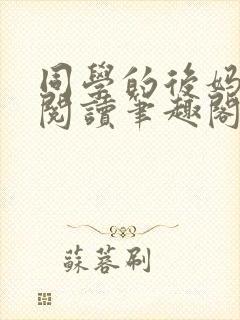 同學的後媽
閱讀筆趣閣
蘇蓉刷